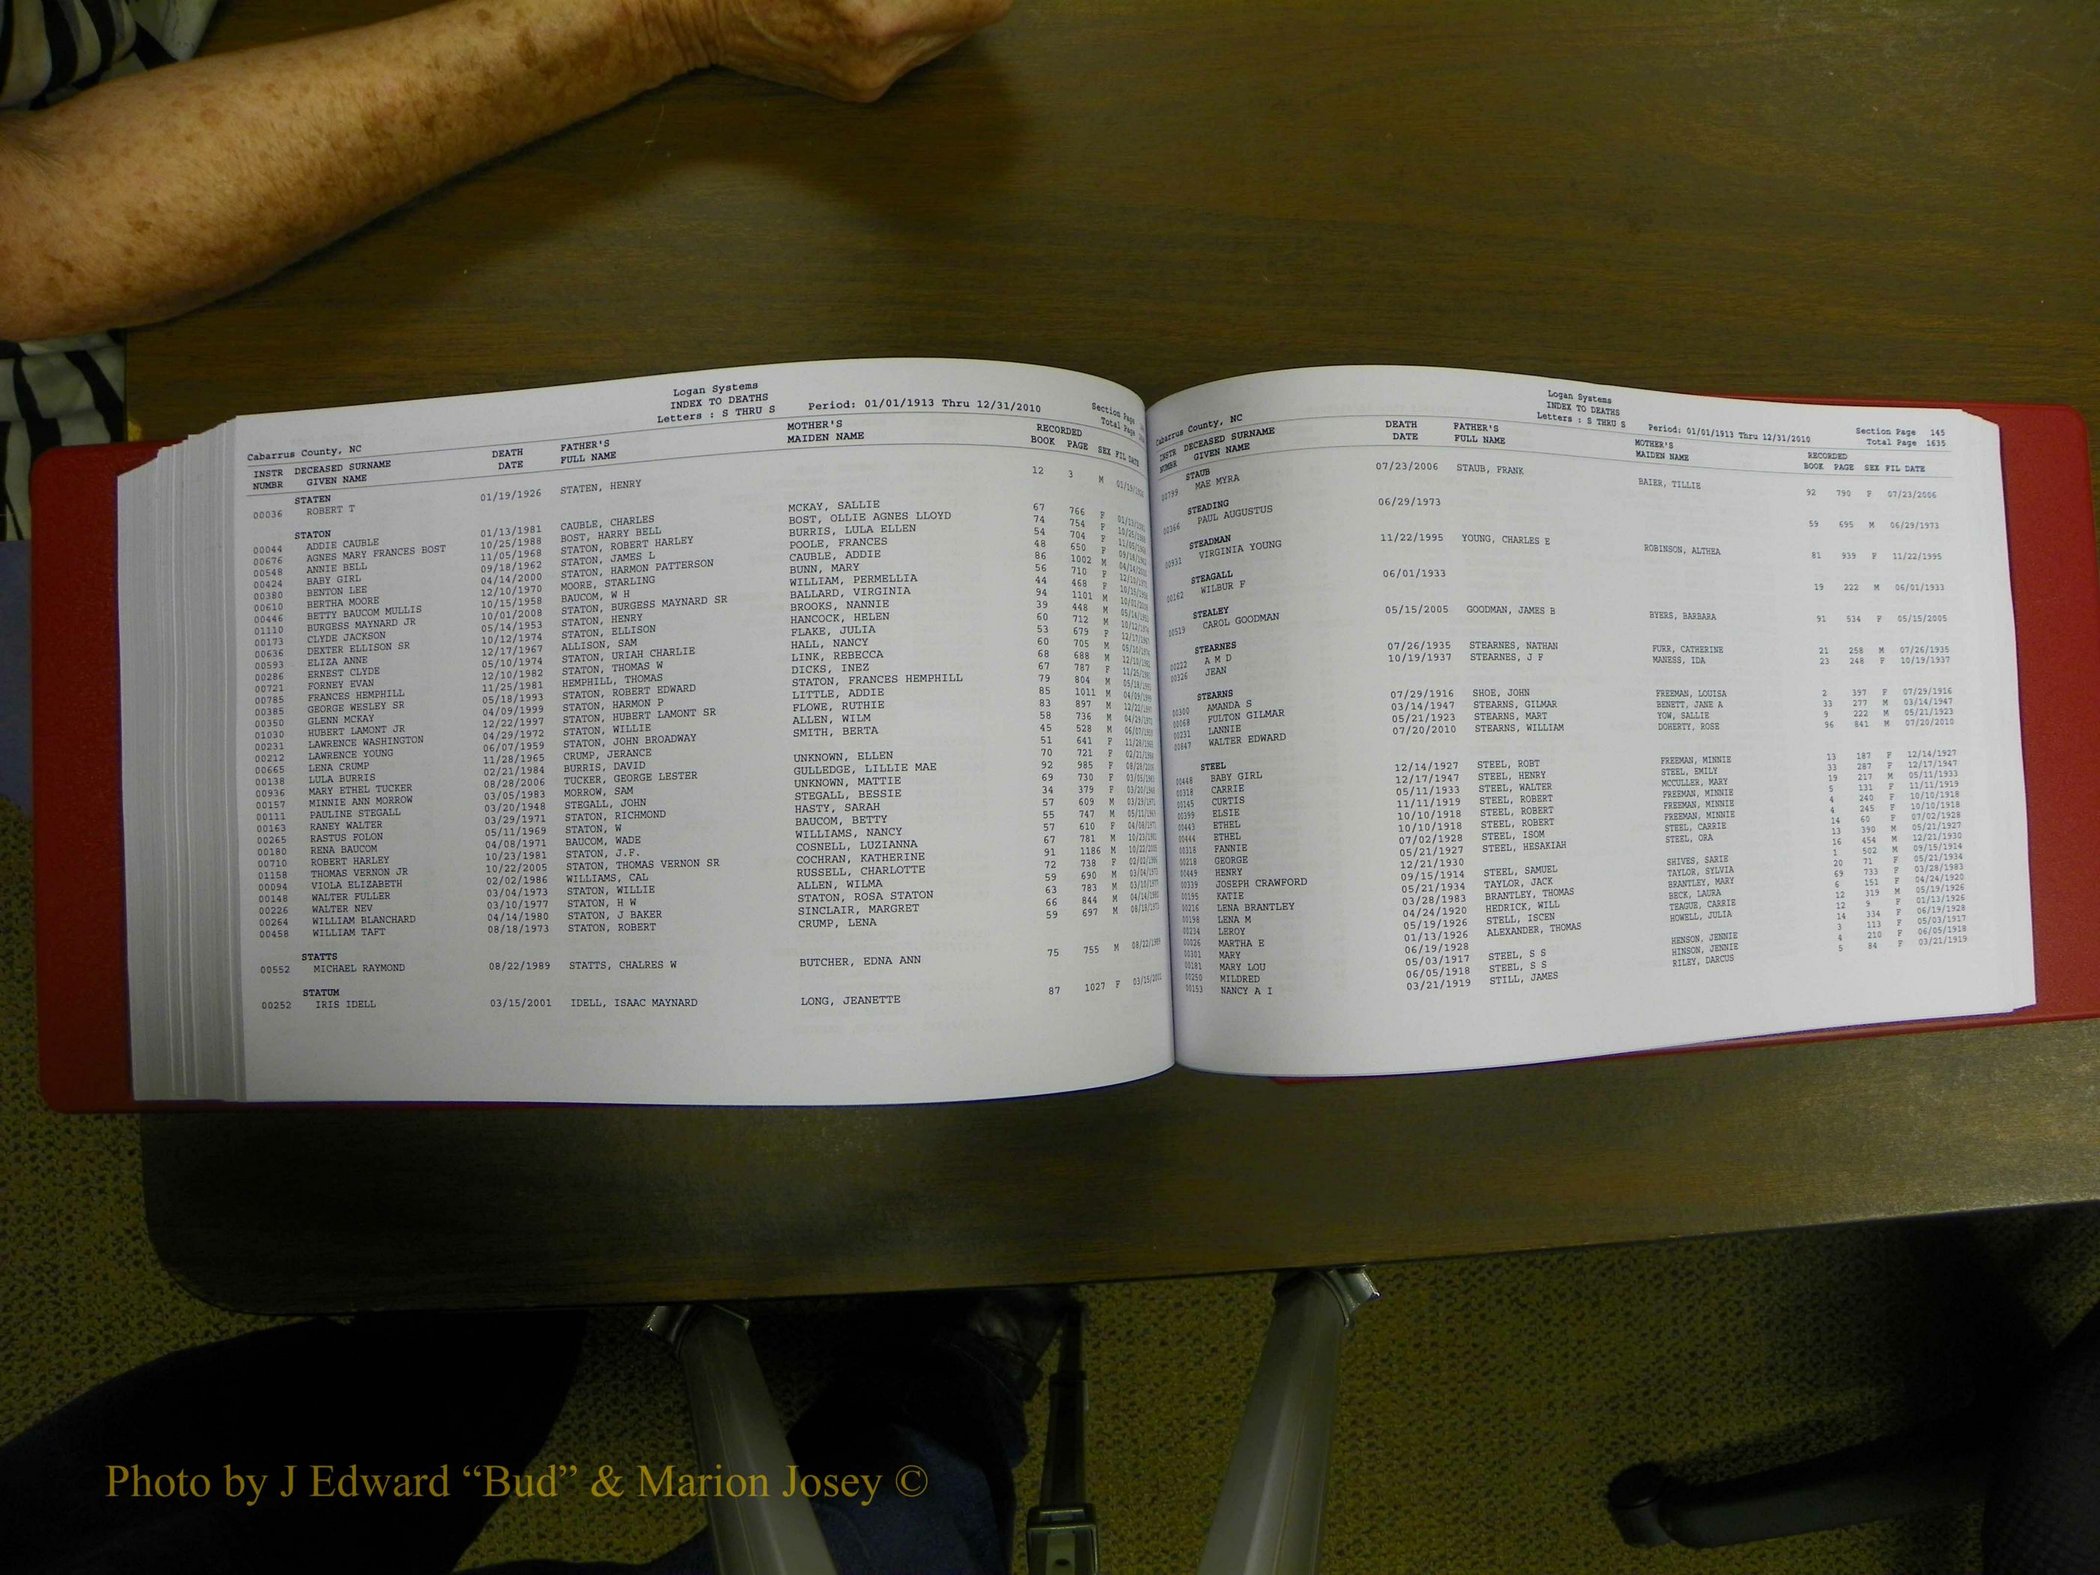 Logan Systems
INDEX TO DEATHS
Cabarrus County, NC Letters : S THRU S Period: 01/01/1913 Thru 12/31/2010 Section Page
Total Page
INSTR DECEASED SURNAME DEATH FATHER'S MOTHER'S RECORDED
NUMBR GIVEN NAME DATE FULL NAME MAIDEN NAME BOOK PAGE SEX FIL DATE
STATEN
00036 ROBERT T 01/19/1926 STATEN, HENRY 12 3 M 01/19/1926
STATON
00044 ADDIE CAUBLE 01/13/1981 CAUBLE, CHARLES MCKAY, SALLIE 67 766 F 01/13/1981
00676 AGNES MARY FRANCES BOST 10/25/1988 BOST, HARRY BELL BOST, OLLIE AGNES LLOYD 74 754 F 10/25/1988
00548 ANNIE BELL 11/05/1968 STATON, ROBERT HARLEY BURRIS, LULA ELLEN 54 704 F 11/05/1968
00424 BABY GIRL 09/18/1962 STATON, JAMES L POOLE, FRANCES 48 650 F 09/18/1962
00380 BENTON LEE 04/14/2000 STATON, HARMON PATTERSON CAUBLE, ADDIE 86 1002 M 04/14/2000
00610 BERTHA MOORE 12/10/1970 MOORE, STARLING BUNN, MARY 56 710 F 12/10/1970
00446 BETTY BAUCOM MULLIS 10/15/1958 BAUCOM, W H WILLIAM, PERMELLIA 44 468 F 10/15/1958
01110 BURGESS MAYNARD JR 10/01/2008 STATON, BURGESS MAYNARD SR BALLARD, VIRGINIA 94 1101 M 10/01/2008
00173 CLYDE JACKSON 05/14/1953 STATON, HENRY BROOKS, NANNIE 39 448 M 05/14/1953
00636 DEXTER ELLISON SR 10/12/1974 STATON, ELLISON HANCOCK, HELEN 60 712 M 10/12/1974
00593 ELIZA ANNE 12/17/1967 ALLISON, SAM FLAKE, JULIA 53 679 F 12/17/1967
00286 ERNEST CLYDE 05/10/1974 STATON, URIAH CHARLIE HALL, NANCY 60 705 M 05/10/1974
00721 FORNEY EVAN 12/10/1982 STATON, THOMAS W LINK, REBECCA 68 688 M 12/10/1982
00785 FRANCES HEMPHILL 11/25/1981 HEMPHILL, THOMAS DICKS, INEZ 67 787 F 11/25/1981
00385 GEORGE WESLEY SR 05/18/1993 STATON, ROBERT EDWARD STATON, FRANCES HEMPHILL 79 804 M 05/18/1993
00350 GLENN MCKAY 04/09/1999 STATON, HARMON P LITTLE, ADDIE 85 1011 M 04/09/1999
01030 HUBERT LAMONT JR 12/22/1997 STATON, HUBERT LAMONT SR FLOWE, RUTHIE 83 897 M 12/22/1997
00231 LAWRENCE WASHINGTON 04/29/1972 STATON, WILLIE ALLEN, WILM 58 736 M 04/29/1972
00212 LAWRENCE YOUNG 06/07/1959 STATON, JOHN BROADWAY SMITH, BERTA 45 528 M 06/07/1959
00665 LENA CRUMP 11/28/1965 CRUMP, JERANCE 51 641 F 11/28/1965
00138 LULA BURRIS 02/21/1984 BURRIS, DAVID UNKNOWN, ELLEN 70 721 F 02/21/1984
00936 MARY ETHEL TUCKER 08/28/2006 TUCKER, GEORGE LESTER GULLEDGE, LILLIE MAE 92 985 F 08/28/2006
00157 MINNIE ANN MORROW 03/05/1983 MORROW, SAM UNKNOWN, MATTIE 69 730 F 03/05/1983
00111 PAULINE STEGALL 03/20/1948 STEGALL, JOHN STEGALL, BESSIE 34 379 F 03/20/1948
00163 RANEY WALTER 03/29/1971 STATON, RICHMOND HASTY, SARAH 57 609 M 03/29/1971
00265 RASTUS POLON 05/11/1969 STATON, W BAUCOM, BETTY 55 747 M 05/11/1969
00180 RENA BAUCOM 04/08/1971 BAUCOM, WADE WILLIAMS, NANCY 57 610 F 04/08/1971
00710 ROBERT HARLEY 10/23/1981 STATON, J.F. COSNELL, LUZIANNA 67 781 M 10/23/1981
01158 THOMAS VERNON JR 10/22/2005 STATON, THOMAS VERNON SR COCHRAN, KATHERINE 91 1186 M 10/22/2005
00094 VIOLA ELIZABETH 02/02/1986 WILLIAMS, CAL RUSSELL, CHARLOTTE 72 738 F 02/02/1986
00148 WALTER FULLER 03/04/1973 STATON, WILLIE ALLEN, WILMA 59 690 M 03/04/1973
00226 WALTER NEV 03/10/1977 STATON, H W STATON, ROSA STATON 63 783 M 03/10/1977
00264 WILLIAM BLANCHARD 04/14/1980 STATON, J BAKER SINCLAIR, MARGRET 66 844 M 04/14/1980
00458 WILLIAM TAFT 08/18/1973 STATON, ROBERT CRUMP, LENA 59 697 M 08/18/1973
STATTS
00552 MICHAEL RAYMOND 08/22/1989 STATTS, CHALRES W BUTCHER, EDNA ANN 75 755 M 08/22/1989
STATUM
00252 IRIS IDELL 03/15/2001 IDELL, ISAAC MAYNARD LONG, JEANETTE 87 1027 F 03/15/2001
Logan Systems
INDEX TO DEATHS
Cabarrus County, NC Letters : S THRU S Period: 01/01/1913 Thru 12/31/2010 Section Page 145
Total Page 1635
INSTR DECEASED SURNAME DEATH FATHER'S MOTHER'S RECORDED
NUMBR GIVEN NAME DATE FULL NAME MAIDEN NAME BOOK PAGE SEX FIL DATE
STAUB
00799 MAE MYRA 07/23/2006 STAUB, FRANK BAIER, TILLIE 92 790 F 07/23/2006
STEADING
00366 PAUL AUGUSTUS 06/29/1973 59 695 M 06/29/1973
STEADMAN
00931 VIRGINIA YOUNG 11/22/1995 YOUNG, CHARLES E ROBINSON, ALTHEA 81 939 F 11/22/1995
STEAGALL
00162 WILBUR F 06/01/1933 19 222 M 06/01/1933
STEALEY
00519 CAROL GOODMAN 05/15/2005 GOODMAN, JAMES B BYERS, BARBARA 91 534 F 05/15/2005
STEARNES
00222 A M D 07/26/1935 STEARNES, NATHAN FURR, CATHERINE 21 258 M 07/26/1935
00326 JEAN 10/19/1937 STEARNES, J F MANESS, IDA 23 248 F 10/19/1937
STEARNS
00300 AMANDA S 07/29/1916 SHOE, JOHN FREEMAN, LOUISA 2 397 F 07/29/1916
00068 FULTON GILMAR 03/14/1947 STEARNS, GILMAR BENETT, JANE A 33 277 M 03/14/1947
00231 LANNIE 05/21/1923 STEARNS, MART YOW, SALLIE 9 222 M 05/21/1923
00847 WALTER EDWARD 07/20/2010 STEARNS, WILLIAM DOHERTY, ROSE 96 841 M 07/20/2010
STEEL
00448 BABY GIRL 12/14/1927 STEEL, ROBT FREEMAN, MINNIE 13 187 F 12/14/1927
00318 CARRIE 12/17/1947 STEEL, HENRY STEEL, EMILY 33 287 F 12/17/1947
00145 CURTIS 05/11/1933 STEEL, WALTER MCCULLER, MARY 19 217 M 05/11/1933
00399 ELSIE 11/11/1919 STEEL, ROBERT FREEMAN, MINNIE 5 131 F 11/11/1919
00443 ETHEL 10/10/1918 STEEL, ROBERT FREEMAN, MINNIE 4 240 F 10/10/1918
00444 ETHEL 10/10/1918 STEEL, ROBERT FREEMAN, MINNIE 4 245 F 10/10/1918
00318 FANNIE 07/02/1928 STEEL, ISOM STEEL, CARRIE 14 60 F 07/02/1928
00218 GEORGE 05/21/1927 STEEL, HESAKIAH STEEL, ORA 13 390 M 05/21/1927
00449 HENRY 12/21/1930 16 454 M 12/21/1930
00339 JOSEPH CRAWFORD 09/15/1914 STEEL, SAMUEL SHIVES, SARIE 1 502 M 09/15/1914
00195 KATIE 05/21/1934 TAYLOR, JACK TAYLOR, SYLVIA 20 71 F 05/21/1934
00216 LENA BRANTLEY 03/28/1983 BRANTLEY, THOMAS BRANTLEY, MARY 69 733 F 03/28/1983
00198 LENA M 04/24/1920 HEDRICK, WILL BECK, LAURA 6 151 F 04/24/1920
00234 LEROY 05/19/1926 STELL, ISCEN TEAGUE, CARRIE 12 319 M 05/19/1926
00026 MARTHA E 01/13/1926 ALEXANDER, THOMAS HOWELL, JULIA 12 9 F 01/13/1926
00301 MARY 06/19/1928 14 334 F 06/19/1928
00181 MARY LOU 05/03/1917 STEEL, S S HENSON, JENNIE 3 113 F 05/03/1917
00250 MILDRED 06/05/1918 STEEL, S S HINSON, JENNIE 4 210 F 06/05/1918
00153 NANCY A I 03/21/1919 STILL, JAMES RILEY, DARCUS 5 84 F 03/21/1919
Photo by J Edward “Bud” & Marion Josey ©